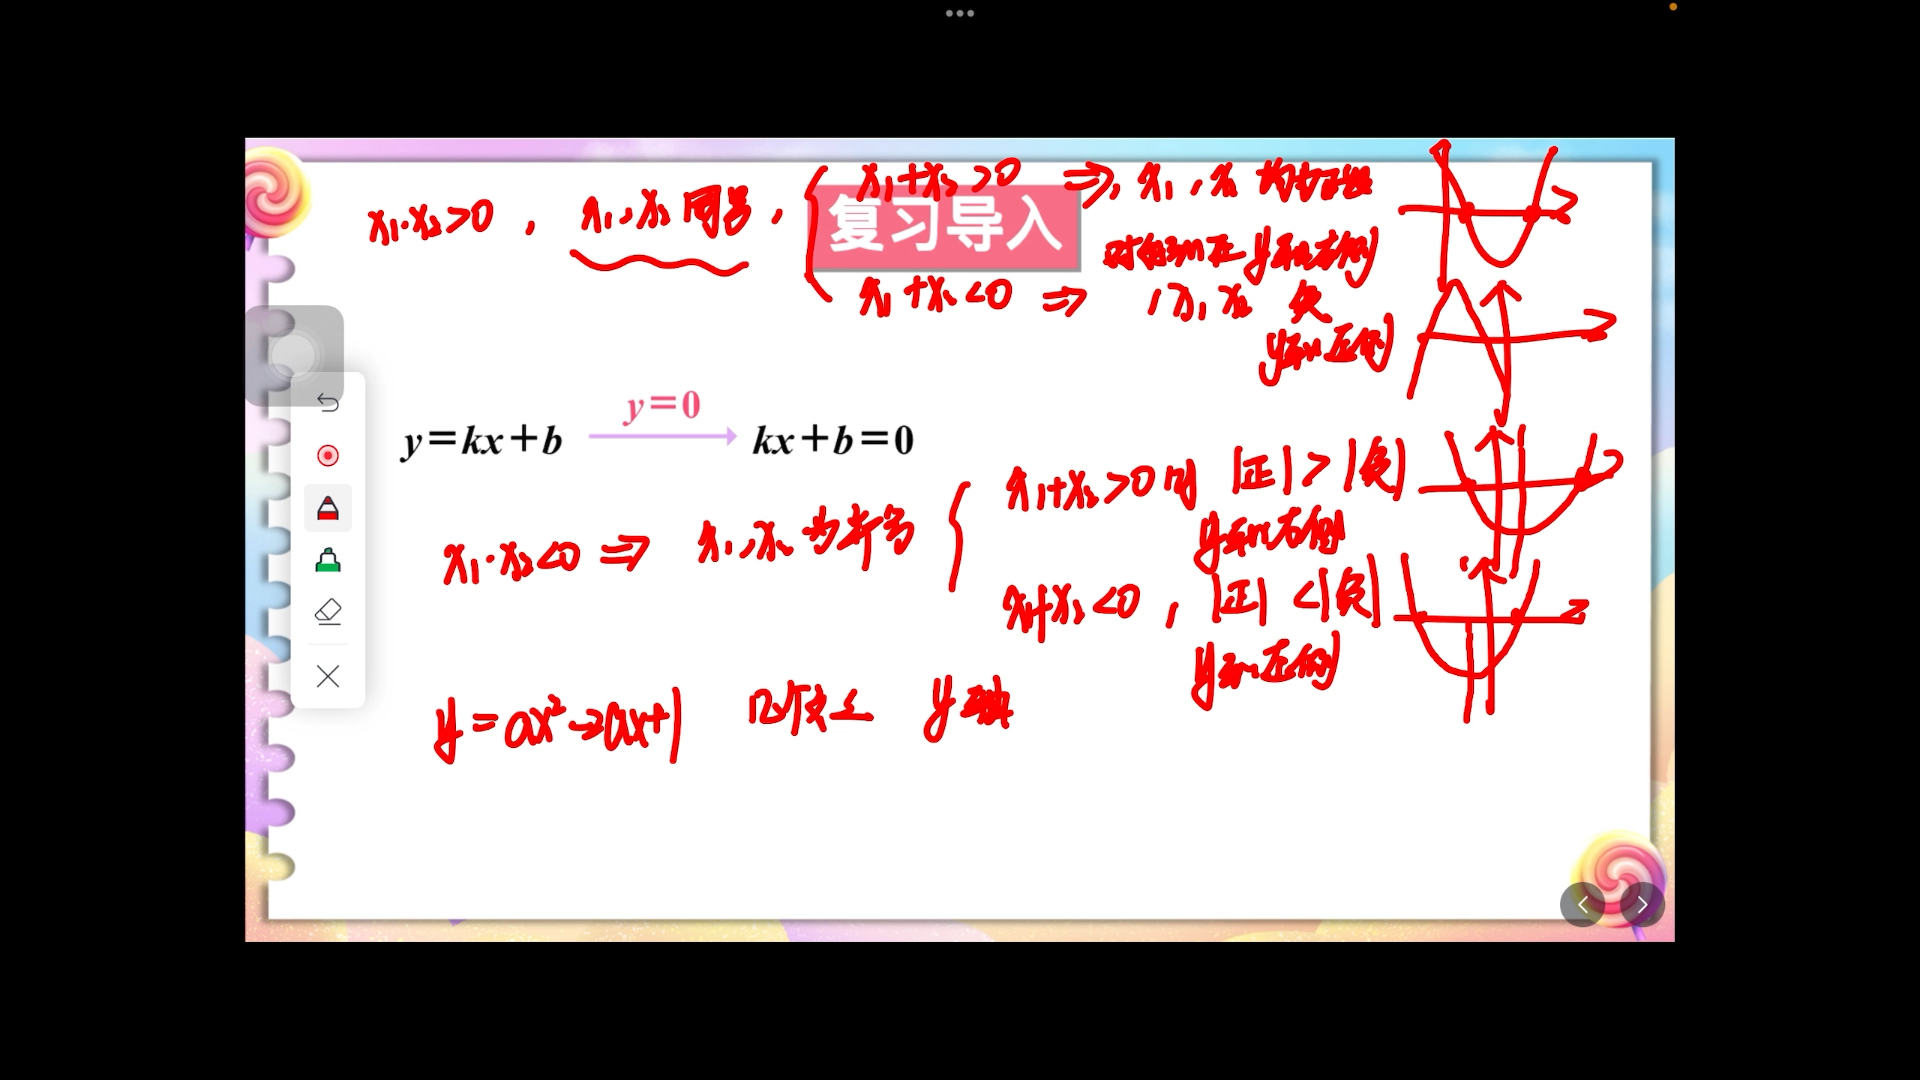 x₁·x₂>0 , x₁,x₂ 同号 , { x₁+x₂>0 ⇒, x₁,x₂ 均为正
复习导入
对称轴在 y轴右侧
x₁+x₂<0 ⇒ , x₁ x₂ 负
y轴左侧
y=0
y=kx+b → kx+b=0
x₁·x₂<0 ⇒ x₁,x₂ 为异号 { x₁+x₂>0 则 |正|>|负|
y轴右侧
x₁+x₂<0 , |正|<|负|
y轴左侧
y=ax²-2ax+1 y轴